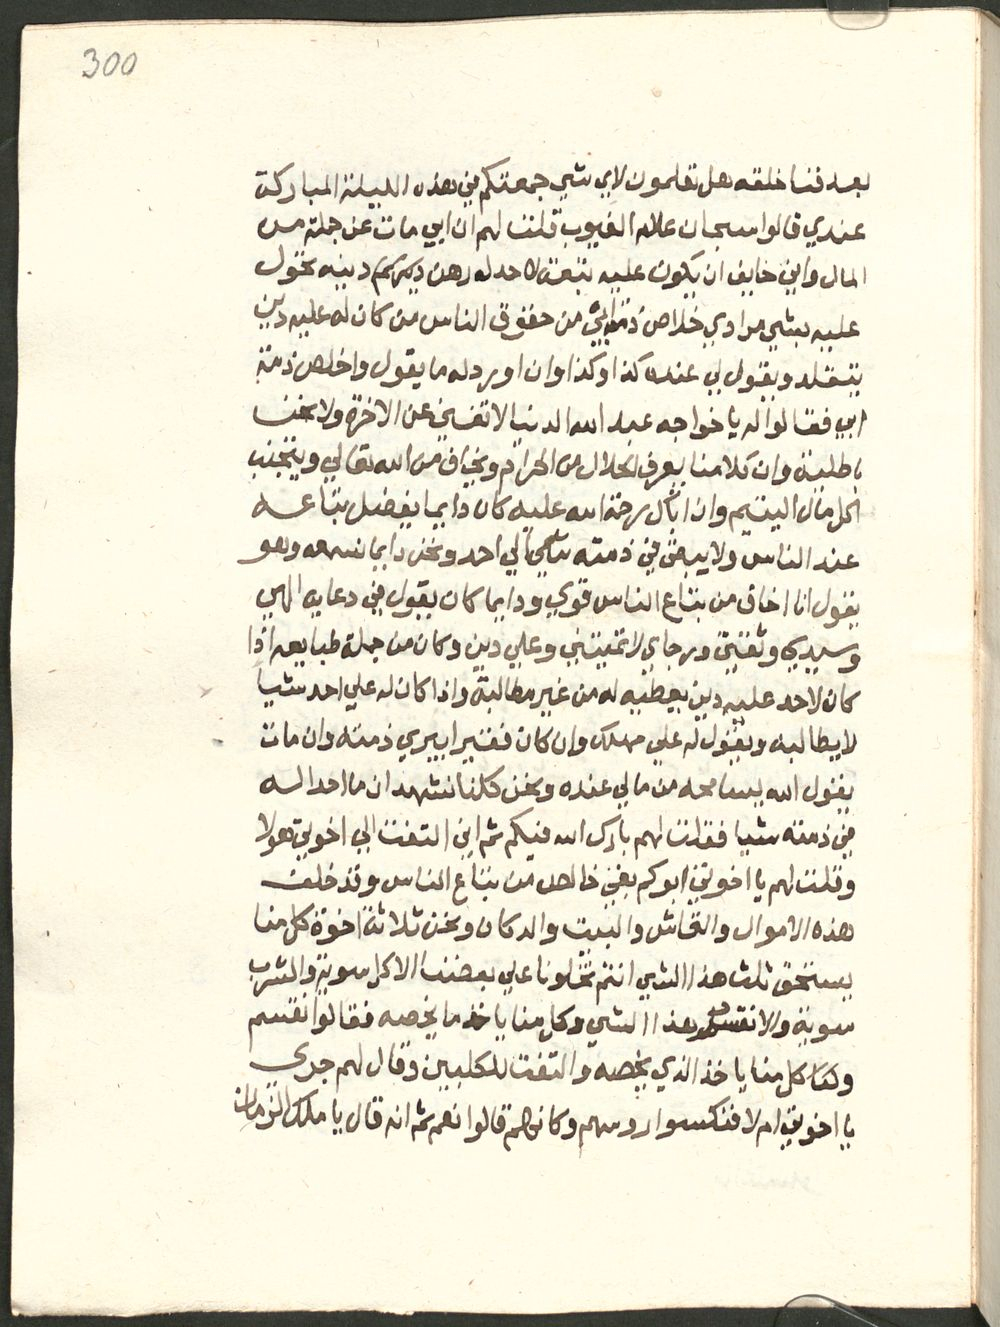 300
بعد فنا خلقه هل تعلمون لاي شي جمعتكم في هذه الليلة المباركة
عندي قالوا سبحان علام الغيوب قلت لهم ان ابي مات عن جملة من
المال واني خايف ان يكون عليه تبعت لاحد له رهن دينه نحول
عليه بشي مرادي خلاص ذمة ابي من حقوق الناس من كان له عليه دين
يتقلد ويقول لي عنده كذا وكذا وان اورد له ما يقول واخلص ذمة
ابي فقالوا له يا خواجه عبد الله الدنيا لا تغني عن الاخرة ولا نحن
باطلية وان كلامنا يعرف الحلال من الحرام ويخاف من الله تعالي ويتجنب
اكل مال اليتيم وان اباك رحمة الله عليه كان دايما يفضل بتاعه
عند الناس ولا يبقي في ذمته شي الي احد ونحن دايما نسمعه وهو
يقول انا اخاف من بتاع الناس قوي ودايما كان يقول في دعايه الهي
وسيدي وثقتي ورجاي لا تميتني وعلي دين وكان من جملة طبايعه اذا
كان لاحد عليه دين يعطيه له من غير مطالبة واذا كان له علي احد شيا
لا يطالبه ويقول له علي مهلك وان كان فقيرا يبري ذمته وان مات
يقول الله يسامحه من مالي عنده ونحن كلنا نشهد ان ما احد له
في ذمته شيا فقلت لهم بارك الله فيكم ثم اني التفت الي اخوتي هولا
وقلت لهم يا اخوتي ابوكم بقي خالص من بتاع الناس وقد خلف
هذه الاموال والقماش والبيت والدكان ونحن ثلاثة اخوة كل منا
يستحق ثلث هذا الشي انتم تخلونا علي بعضنا الاكل سوية والشرب
سوية والا نقسم هذا الشي وكل منا ياخذ ما يخصه فقالوا نقسم
وكنا كل منا ياخذ الذي يخصه والتفت للكلبين وقال لهم جري
يا اخوتي ام لا فنكسوا روسهم وكانهم قالوا نعم ثم انه قال يا ملك الزمان